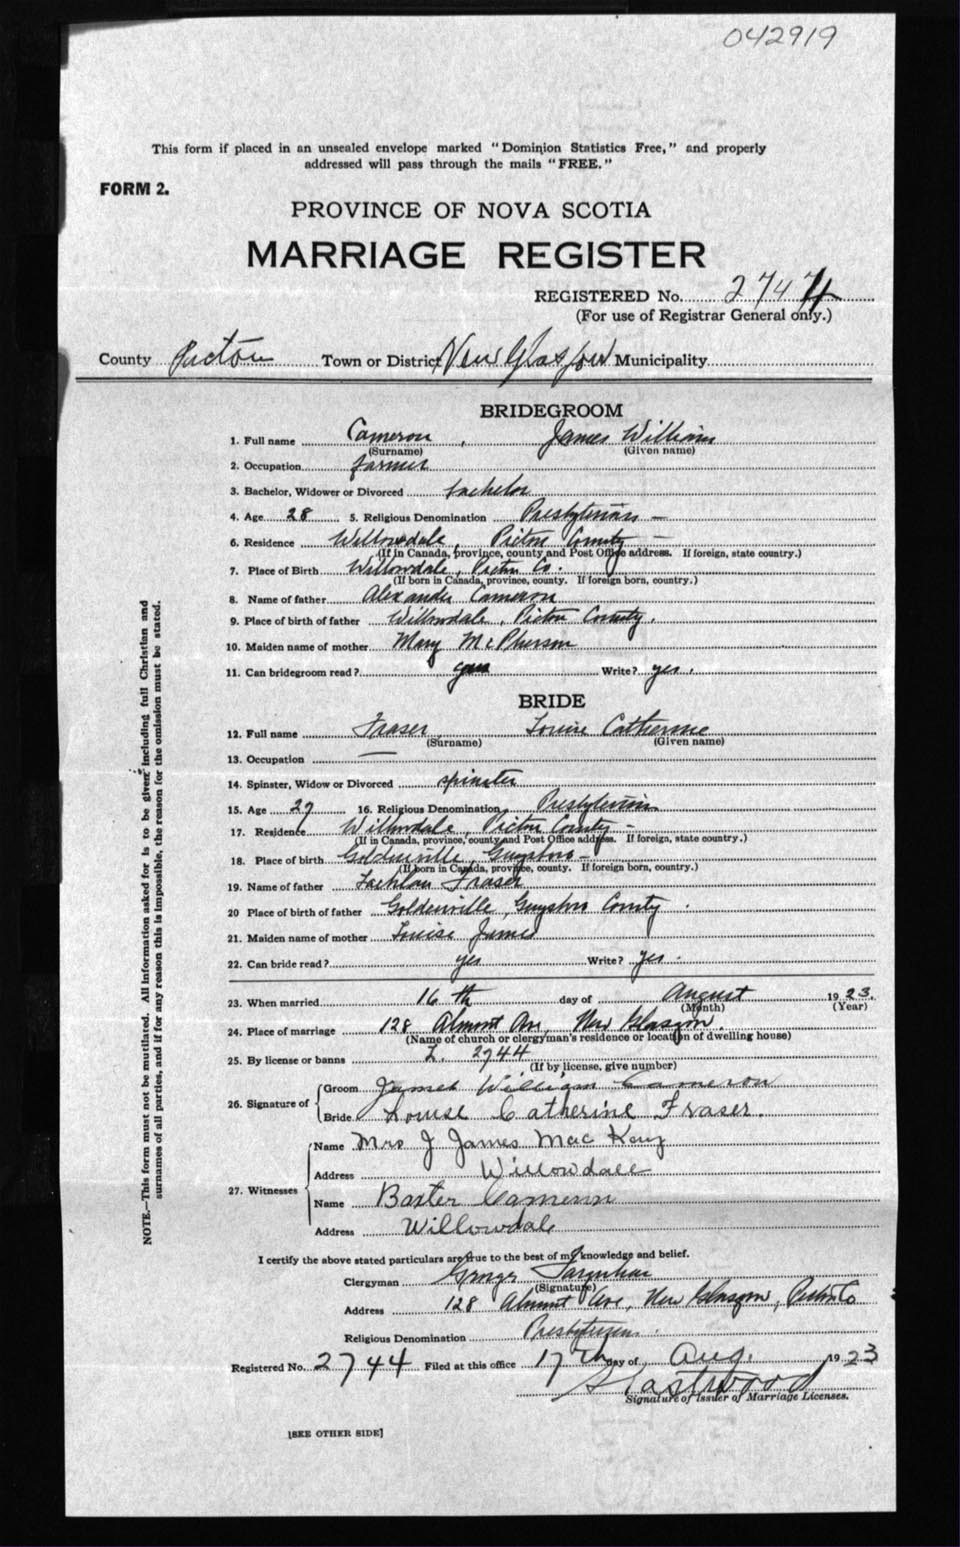 042919
This form if placed in an unsealed envelope marked "Dominion Statistics Free," and properly
addressed will pass through the mails "FREE."
FORM 2.
PROVINCE OF NOVA SCOTIA
MARRIAGE REGISTER
REGISTERED No. 2744
(For use of Registrar General only.)
County Pictou Town or District New Glasgow Municipality
BRIDEGROOM
1. Full name Cameron, James William
(Surname) (Given name)
2. Occupation farmer
3. Bachelor, Widower or Divorced bachelor
4. Age 28 5. Religious Denomination Presbyterian —
6. Residence Willowdale, Pictou County —
(If in Canada, province, county and Post Office address. If foreign, state country.)
7. Place of Birth Willowdale, Pictou Co.
(If born in Canada, province, county. If foreign born, country.)
8. Name of father Alexander Cameron
9. Place of birth of father Willowdale, Pictou County.
10. Maiden name of mother Mary McPherson
11. Can bridegroom read? yes Write? yes.
BRIDE
12. Full name Fraser Louise Catherine
(Surname) (Given name)
13. Occupation —
14. Spinster, Widow or Divorced spinster
15. Age 27 16. Religious Denomination Presbyterian
17. Residence Willowdale, Pictou County —
(If in Canada, province, county and Post Office address. If foreign, state country.)
18. Place of birth Goldenville, Guysboro —
(If born in Canada, province, county. If foreign born, country.)
19. Name of father Lachlan Fraser
20 Place of birth of father Goldenville, Guysboro County.
21. Maiden name of mother Louise James
22. Can bride read? yes Write? yes.
23. When married 16th day of August 1923.
(Month) (Year)
24. Place of marriage 128 Almont Ave, New Glasgow.
(Name of church or clergyman's residence or location of dwelling house)
25. By license or banns L. 2744
(If by license, give number)
26. Signature of Groom James William Cameron
Bride Louise Catherine Fraser.
27. Witnesses Name Mrs J James Mac Kay
Address Willowdale
Name Baxter Cameron
Address Willowdale
I certify the above stated particulars are true to the best of my knowledge and belief.
Clergyman George Farquhar
(Signature)
Address 128 Almont Ave, New Glasgow, Pictou Co
Religious Denomination Presbyterian.
Registered No. 2744 Filed at this office 17th day of Aug. 1923
Eastwood
Signature of Issuer of Marriage Licenses.
[SEE OTHER SIDE]
NOTE.—This form must not be mutilated. All information asked for is to be given, including full Christian and
surnames of all parties, and if for any reason this is impossible, the reason for the omission must be stated.